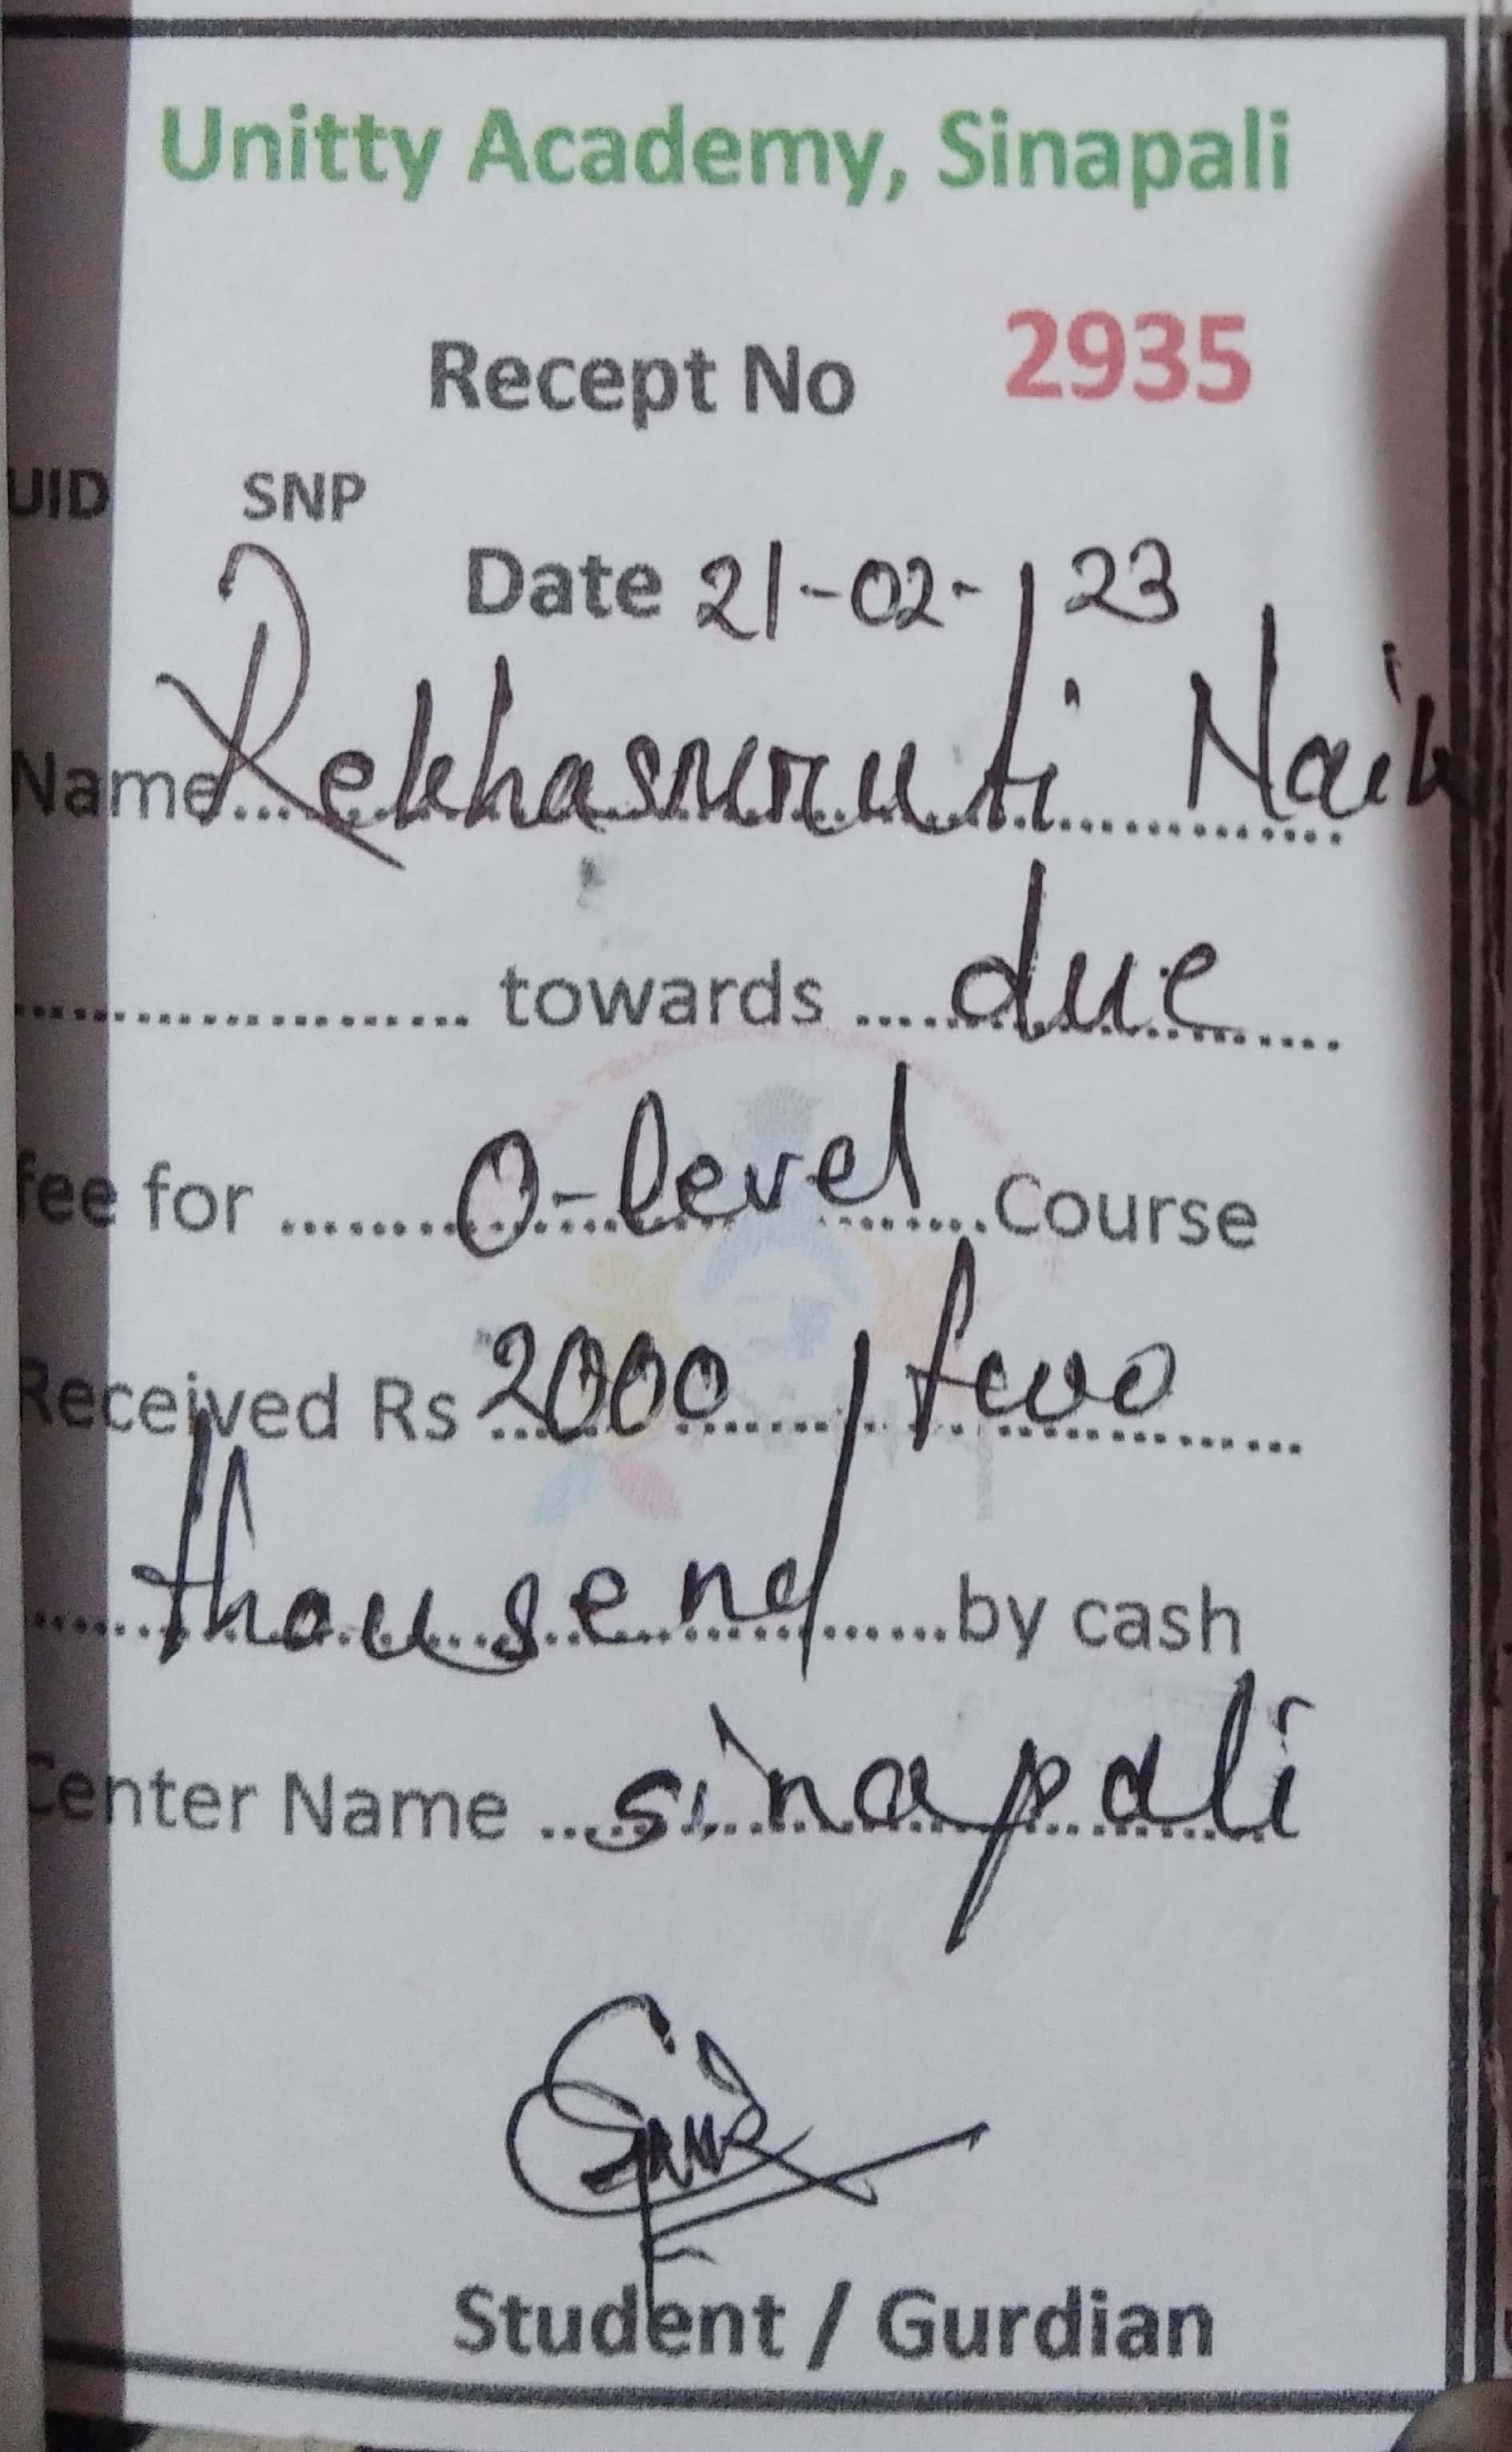 Unitty Academy, Sinapali
Recept No 2935
UID SNP
Date 21-02-23
Name Rekhasmruti Naik
towards due
fee for O-level Course
Received Rs 2000 / two
thousend by cash
Center Name sinapali
Student / Gurdian